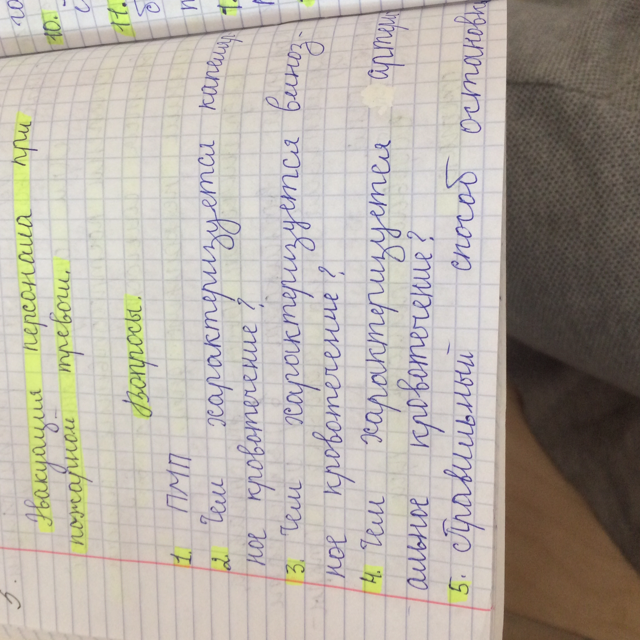 Эвакуация персонала при
пожарной тревоги.
Вопросы.
1. ПМП
2. Чем характеризуется капилляр
ное кровотечение?
3. Чем характеризуется веноз-
ное кровотечение?
4. Чем характеризуется артери
альное кровотечение?
5. Правильный способ остановки